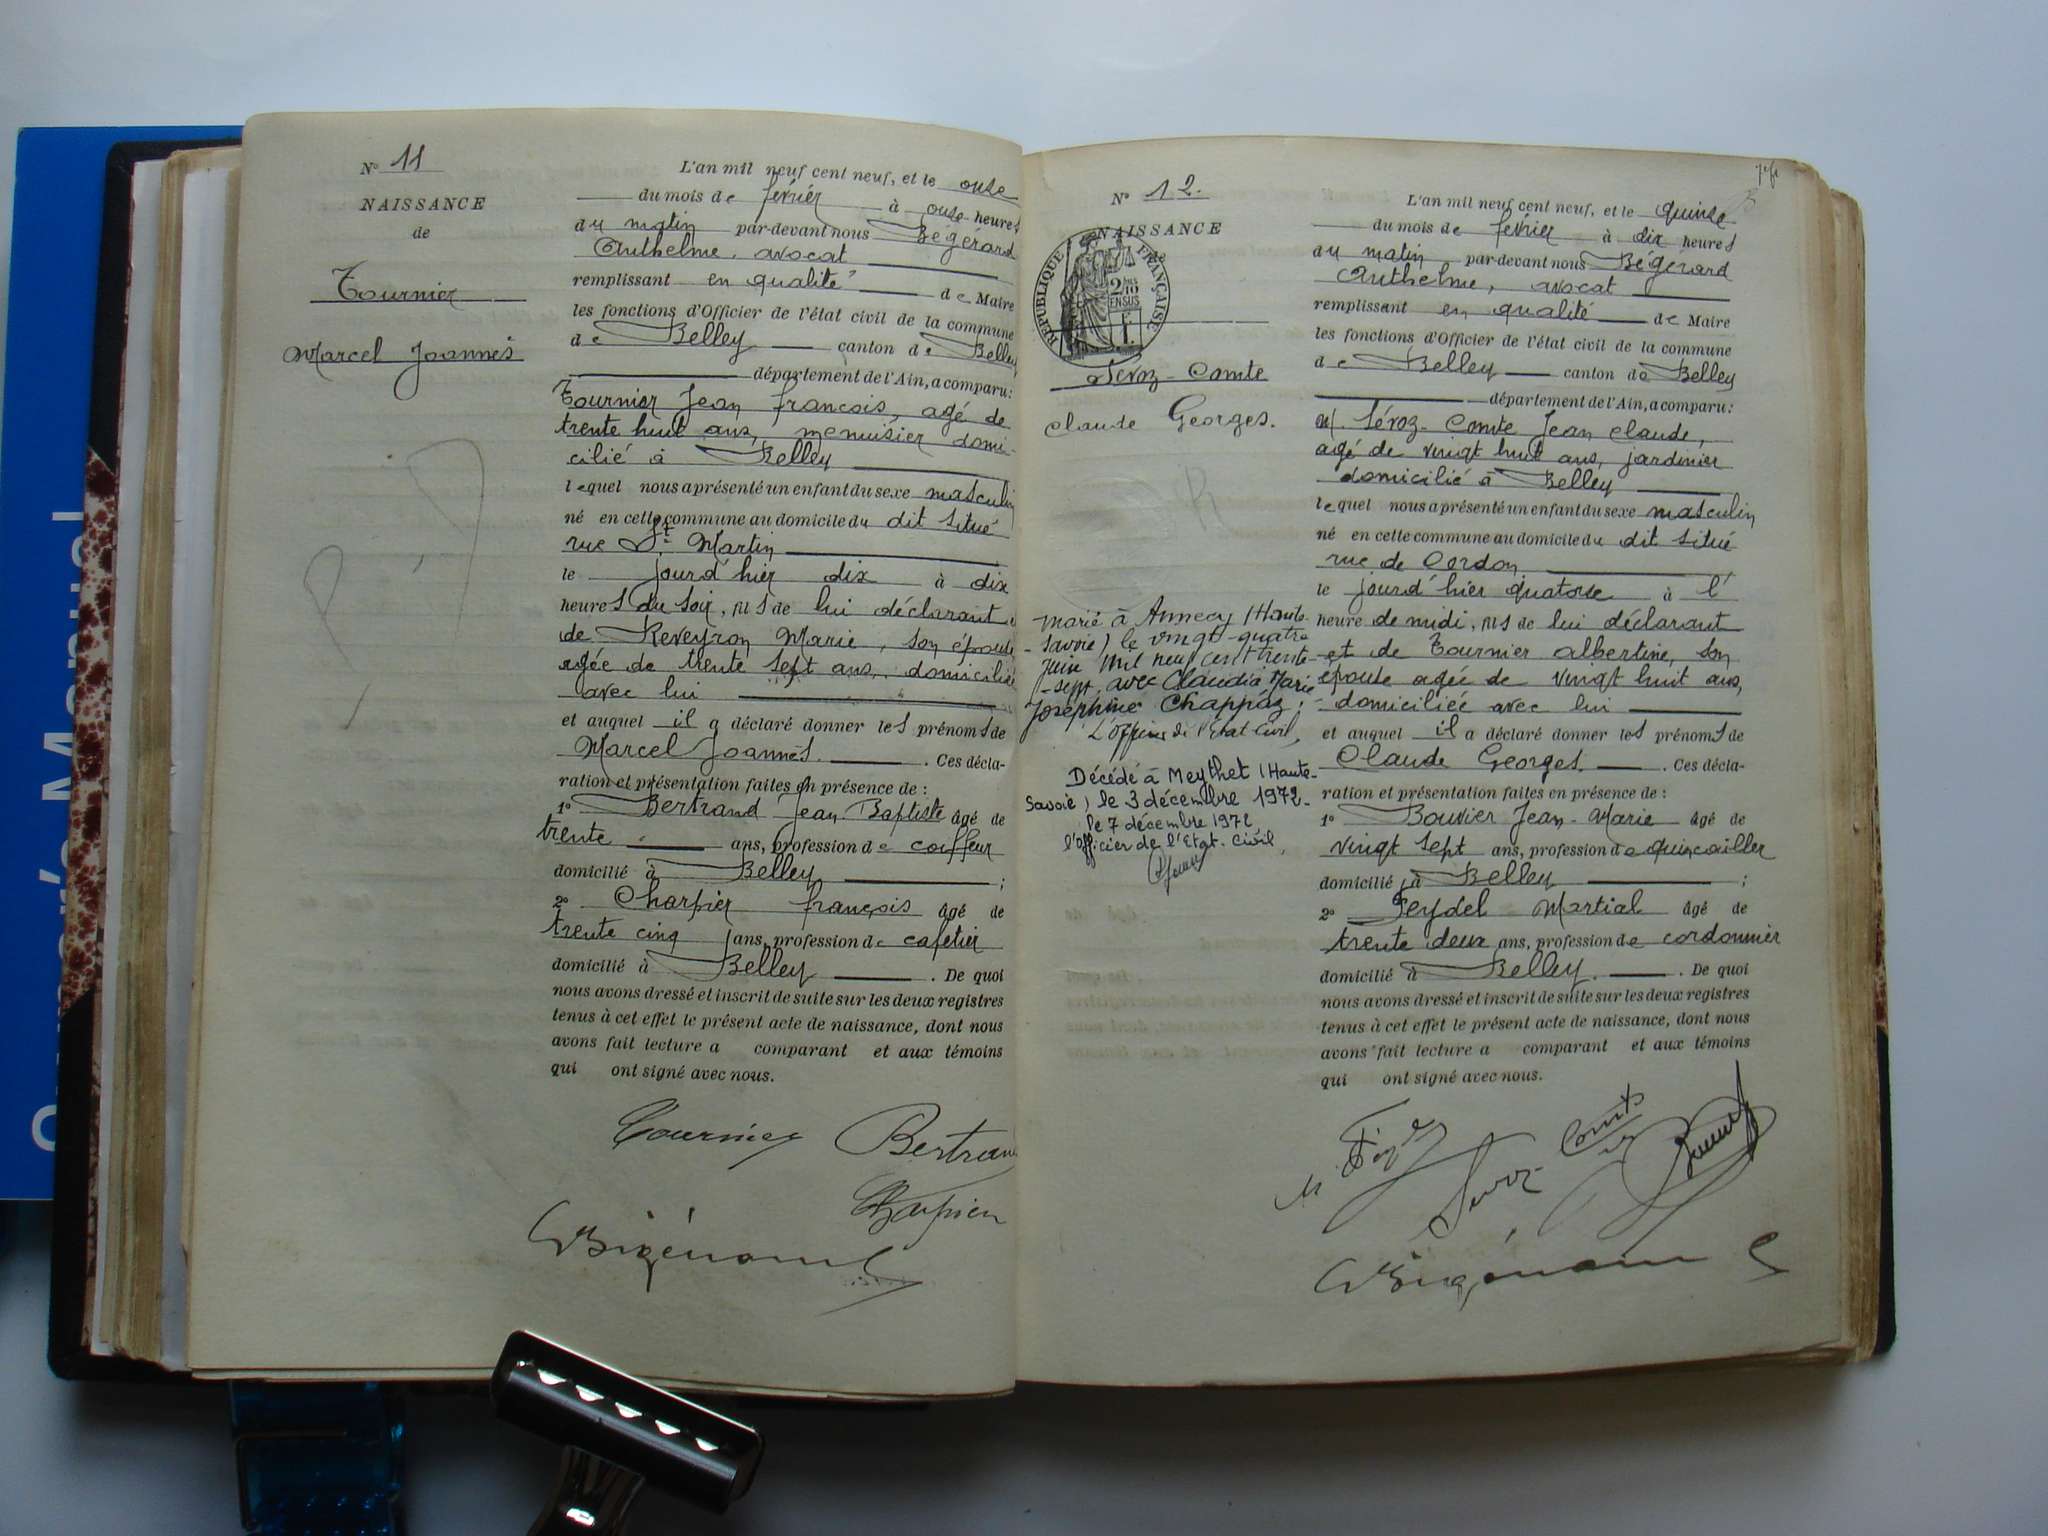 N° 11
NAISSANCE
de
Tournier
Marcel Joannès
L'an mil neuf cent neuf, et le onze
du mois de février à onze heures
du matin par-devant nous Bégérard
Anthelme, avocat
remplissant en qualité de Maire
les fonctions d'Officier de l'état civil de la commune
de Belley canton de Belley
département de l'Ain, a comparu:
Tournier Jean françois, agé de
trente huit ans, menuisier domi-
cilié à Belley
lequel nous a présenté un enfant du sexe masculin
né en cette commune au domicile du dit situé
rue St. Martin
le jourd'hier dix à dix
heures du soir, fils de lui déclarant
de Reveyron Marie, son épouse
agée de trente sept ans, domiciliée
avec lui
et auquel il a déclaré donner les prénoms de
Marcel Joannès. Ces décla-
ration et présentation faites en présence de :
1° Bertrand Jean Baptiste âgé de
trente ans, profession de coiffeur
domicilié à Belley ;
2° Charpier françois âgé de
trente cinq ans, profession de cafetier
domicilié à Belley. De quoi
nous avons dressé et inscrit de suite sur les deux registres
tenus à cet effet le présent acte de naissance, dont nous
avons fait lecture a comparant et aux témoins
qui ont signé avec nous.
Tournier Bertrand
Charpier
Bégérard
N° 12.
NAISSANCE
RÉPUBLIQUE FRANÇAISE
2/10
EN SUS
Sévoz-Comte
Claude Georges.
marié à Annecy (Haute-
-Savoie) le vingt-quatre
juin mil neuf cent trente-
-sept, avec Claudia Marie
Joséphine Chappaz.
L'officier de l'Etat Civil,
Décédé à Meythet (Haute-
Savoie) le 3 décembre 1972-
le 7 décembre 1972
l'officier de l'Etat-Civil,
L'an mil neuf cent neuf, et le quinze
du mois de février à dix heures
du matin par-devant nous Bégérard
Anthelme, avocat
remplissant en qualité de Maire
les fonctions d'Officier de l'état civil de la commune
de Belley canton de Belley
département de l'Ain, a comparu:
M. Sévoz-Comte Jean Claude,
agé de vingt huit ans, jardinier
domicilié à Belley
lequel nous a présenté un enfant du sexe masculin
né en cette commune au domicile du dit situé
rue de Cordon
le jourd'hier quatorze à l'
heure de midi, fils de lui déclarant
et de Tournier albertine, son
épouse agée de vingt huit ans,
domiciliée avec lui
et auquel il a déclaré donner les prénoms de
Claude Georges. Ces décla-
ration et présentation faites en présence de :
1° Bouvier Jean-Marie âgé de
vingt sept ans, profession de quincailler
domicilié à Belley ;
2° Peydel Martial âgé de
trente deux ans, profession de cordonnier
domicilié à Belley. De quoi
nous avons dressé et inscrit de suite sur les deux registres
tenus à cet effet le présent acte de naissance, dont nous
avons fait lecture a comparant et aux témoins
qui ont signé avec nous.
Bégérard